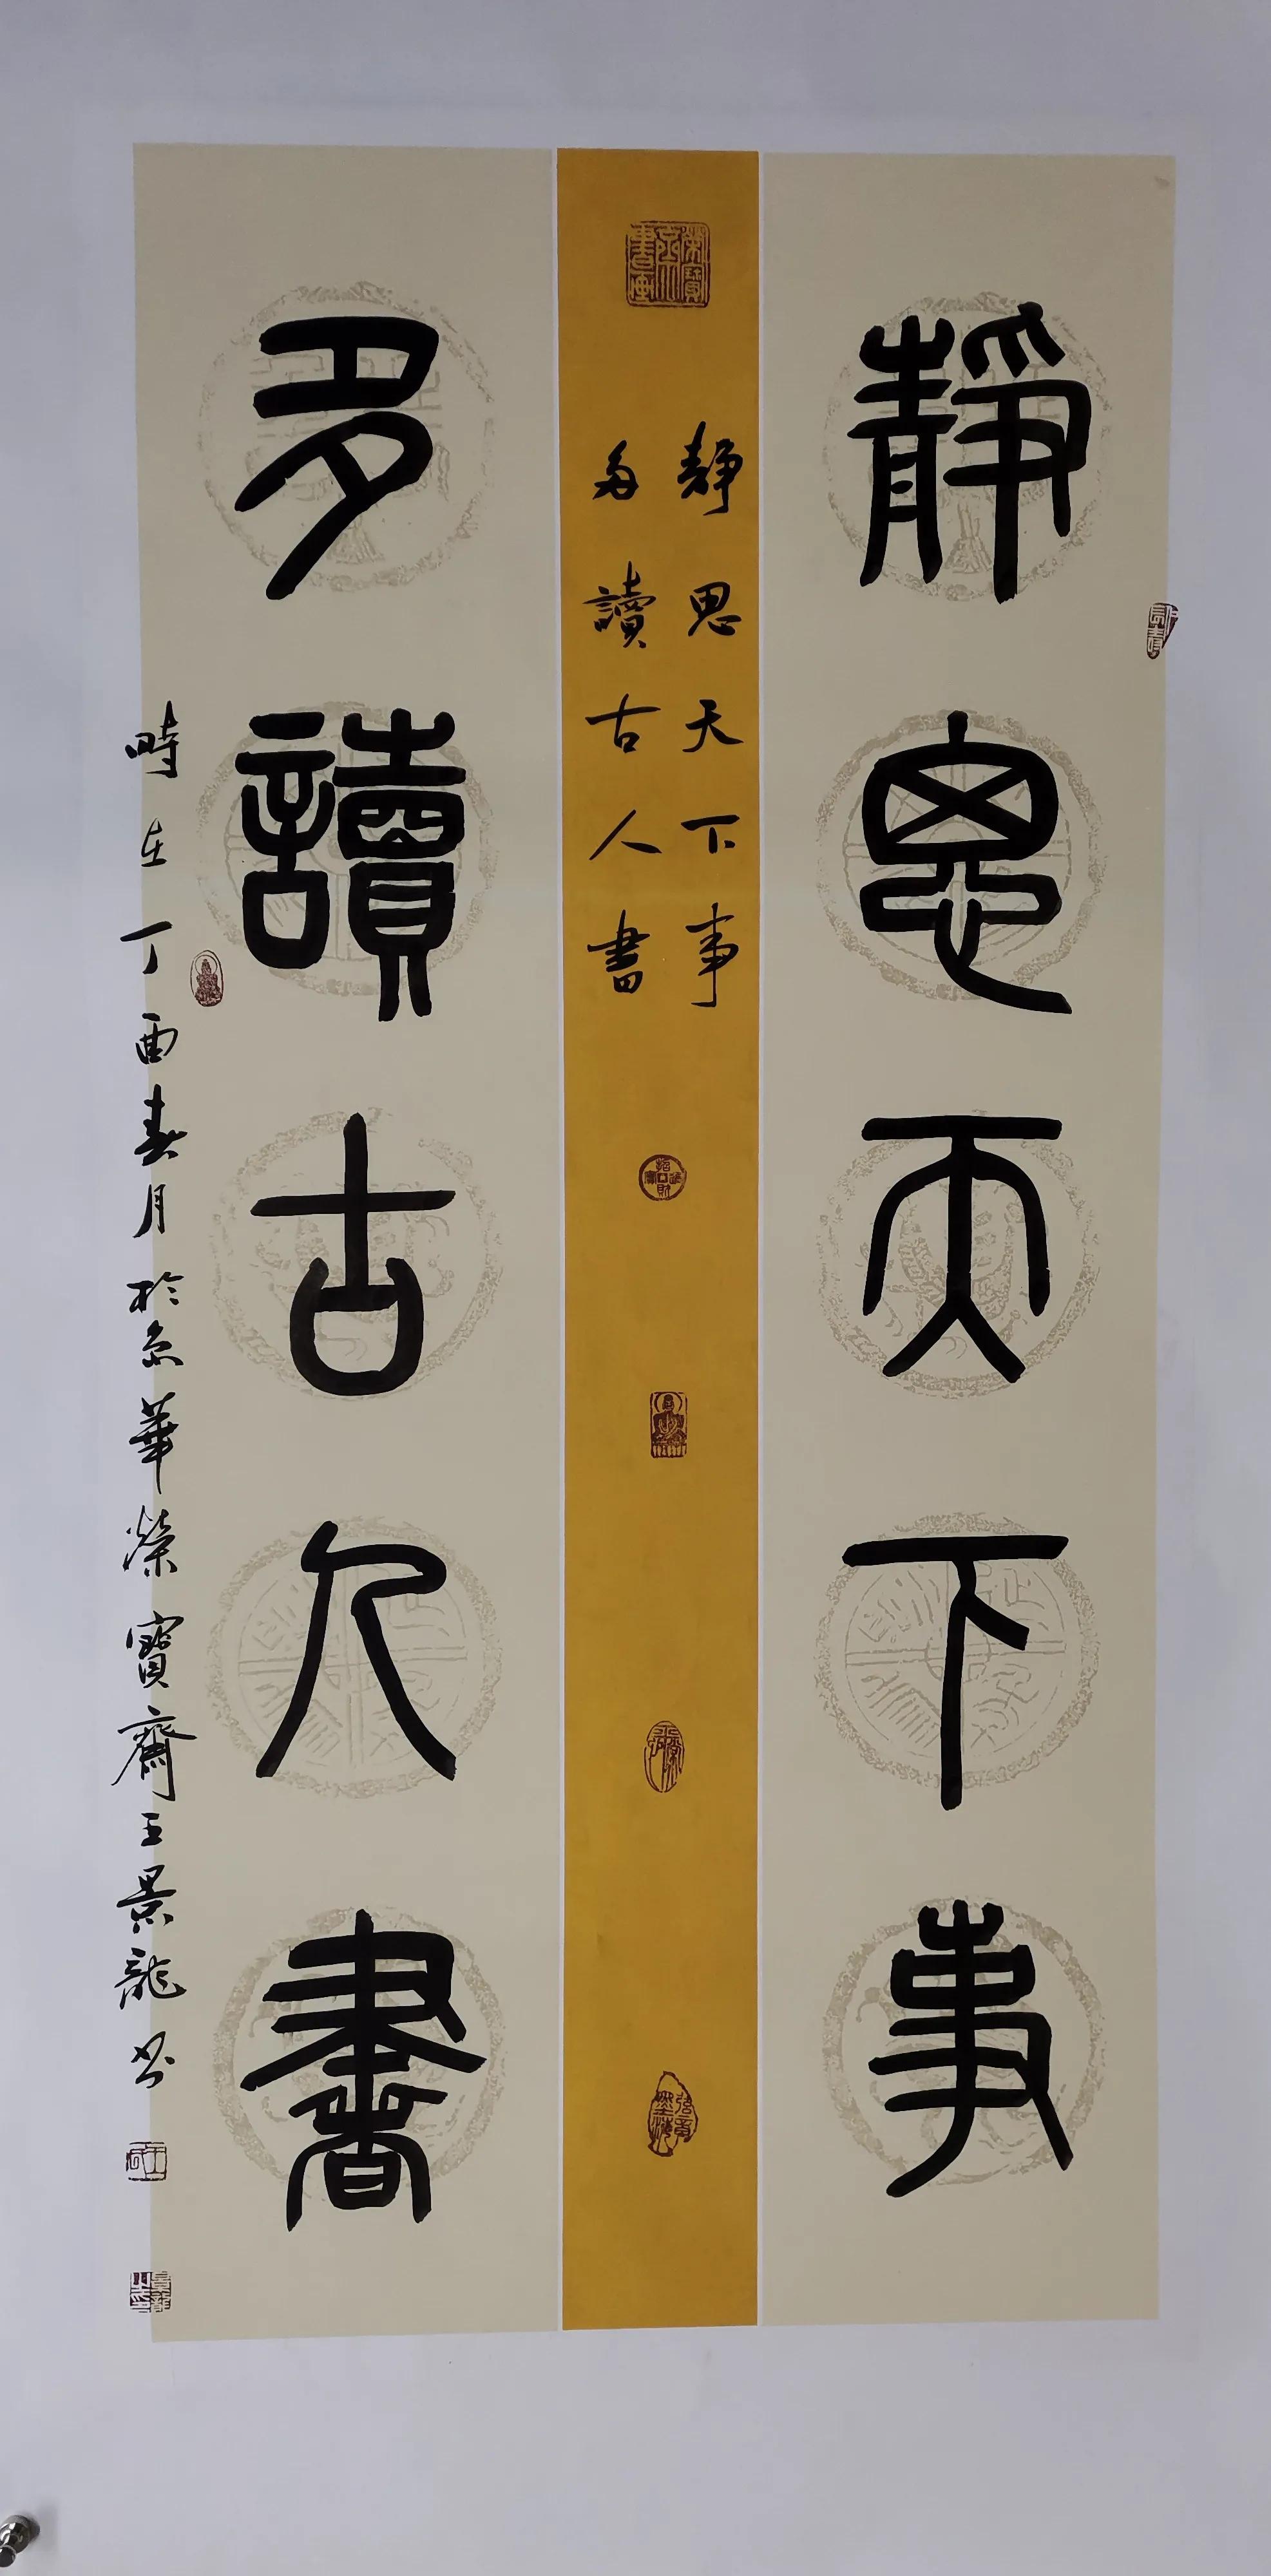 靜思天下事
靜思天下事
多讀古人書
多讀古人書
時在丁酉春月於京華榮寶齋王景龍書